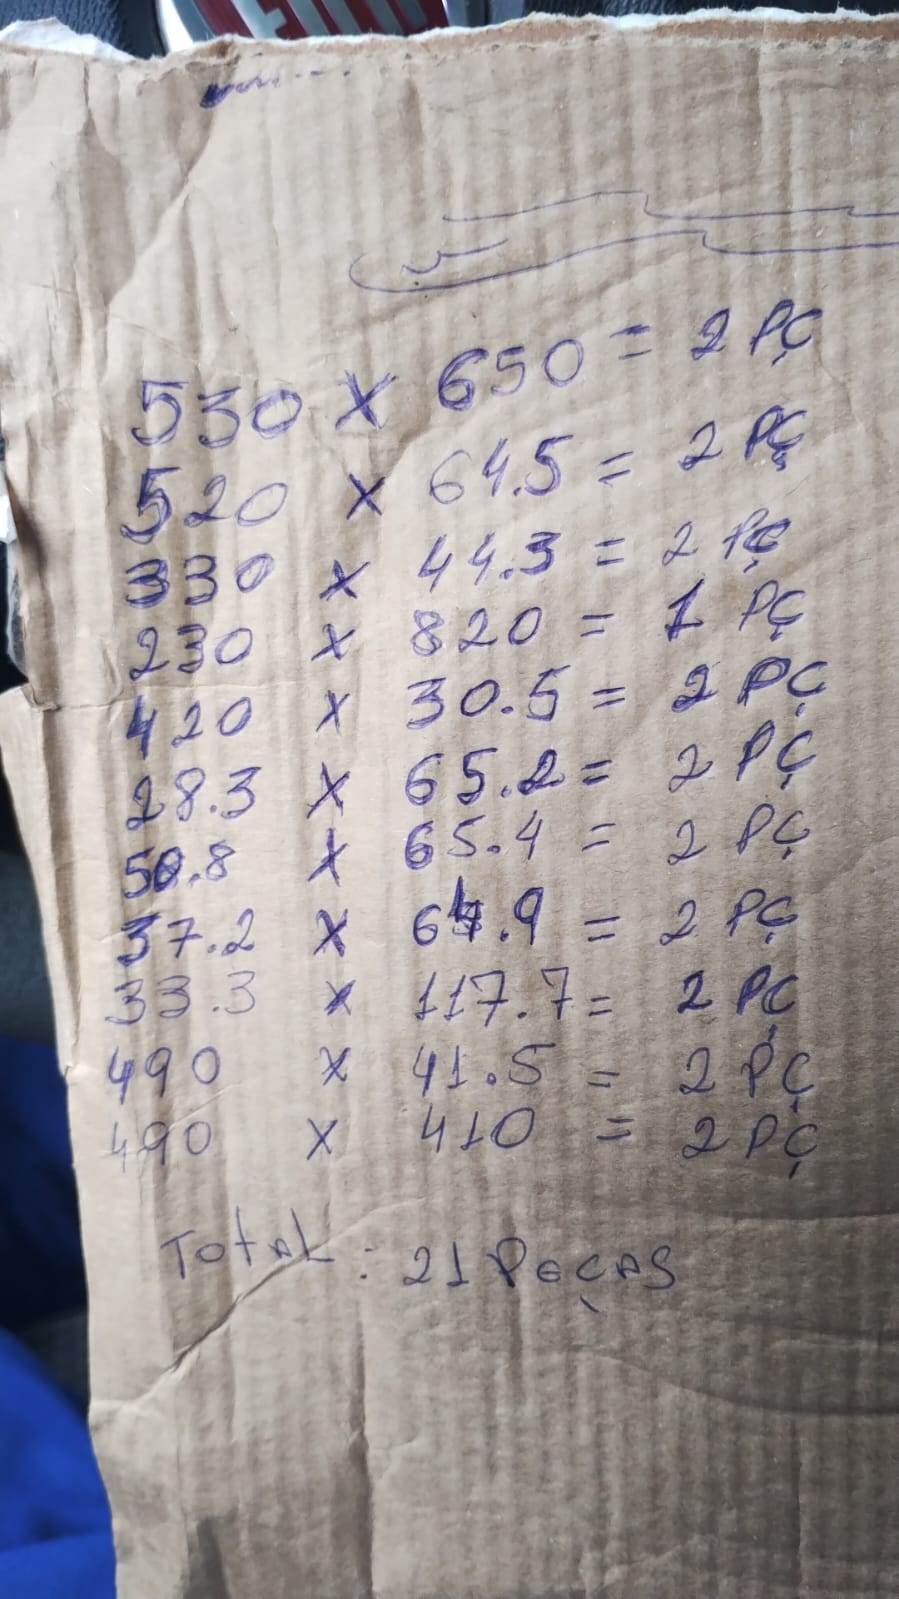 530 X 650 = 2 PÇ
520 X 64.5 = 2 PÇ
330 X 44.3 = 2 PÇ
230 X 820 = 1 PÇ
420 X 30.5 = 2 PÇ
28.3 X 65.2 = 2 PÇ
50.8 X 65.4 = 2 PÇ
37.2 X 64.9 = 2 PÇ
33.3 X 117.7 = 2 PÇ
490 X 41.5 = 2 PÇ
490 X 410 = 2 PÇ
TOTAL: 21 PEÇAS